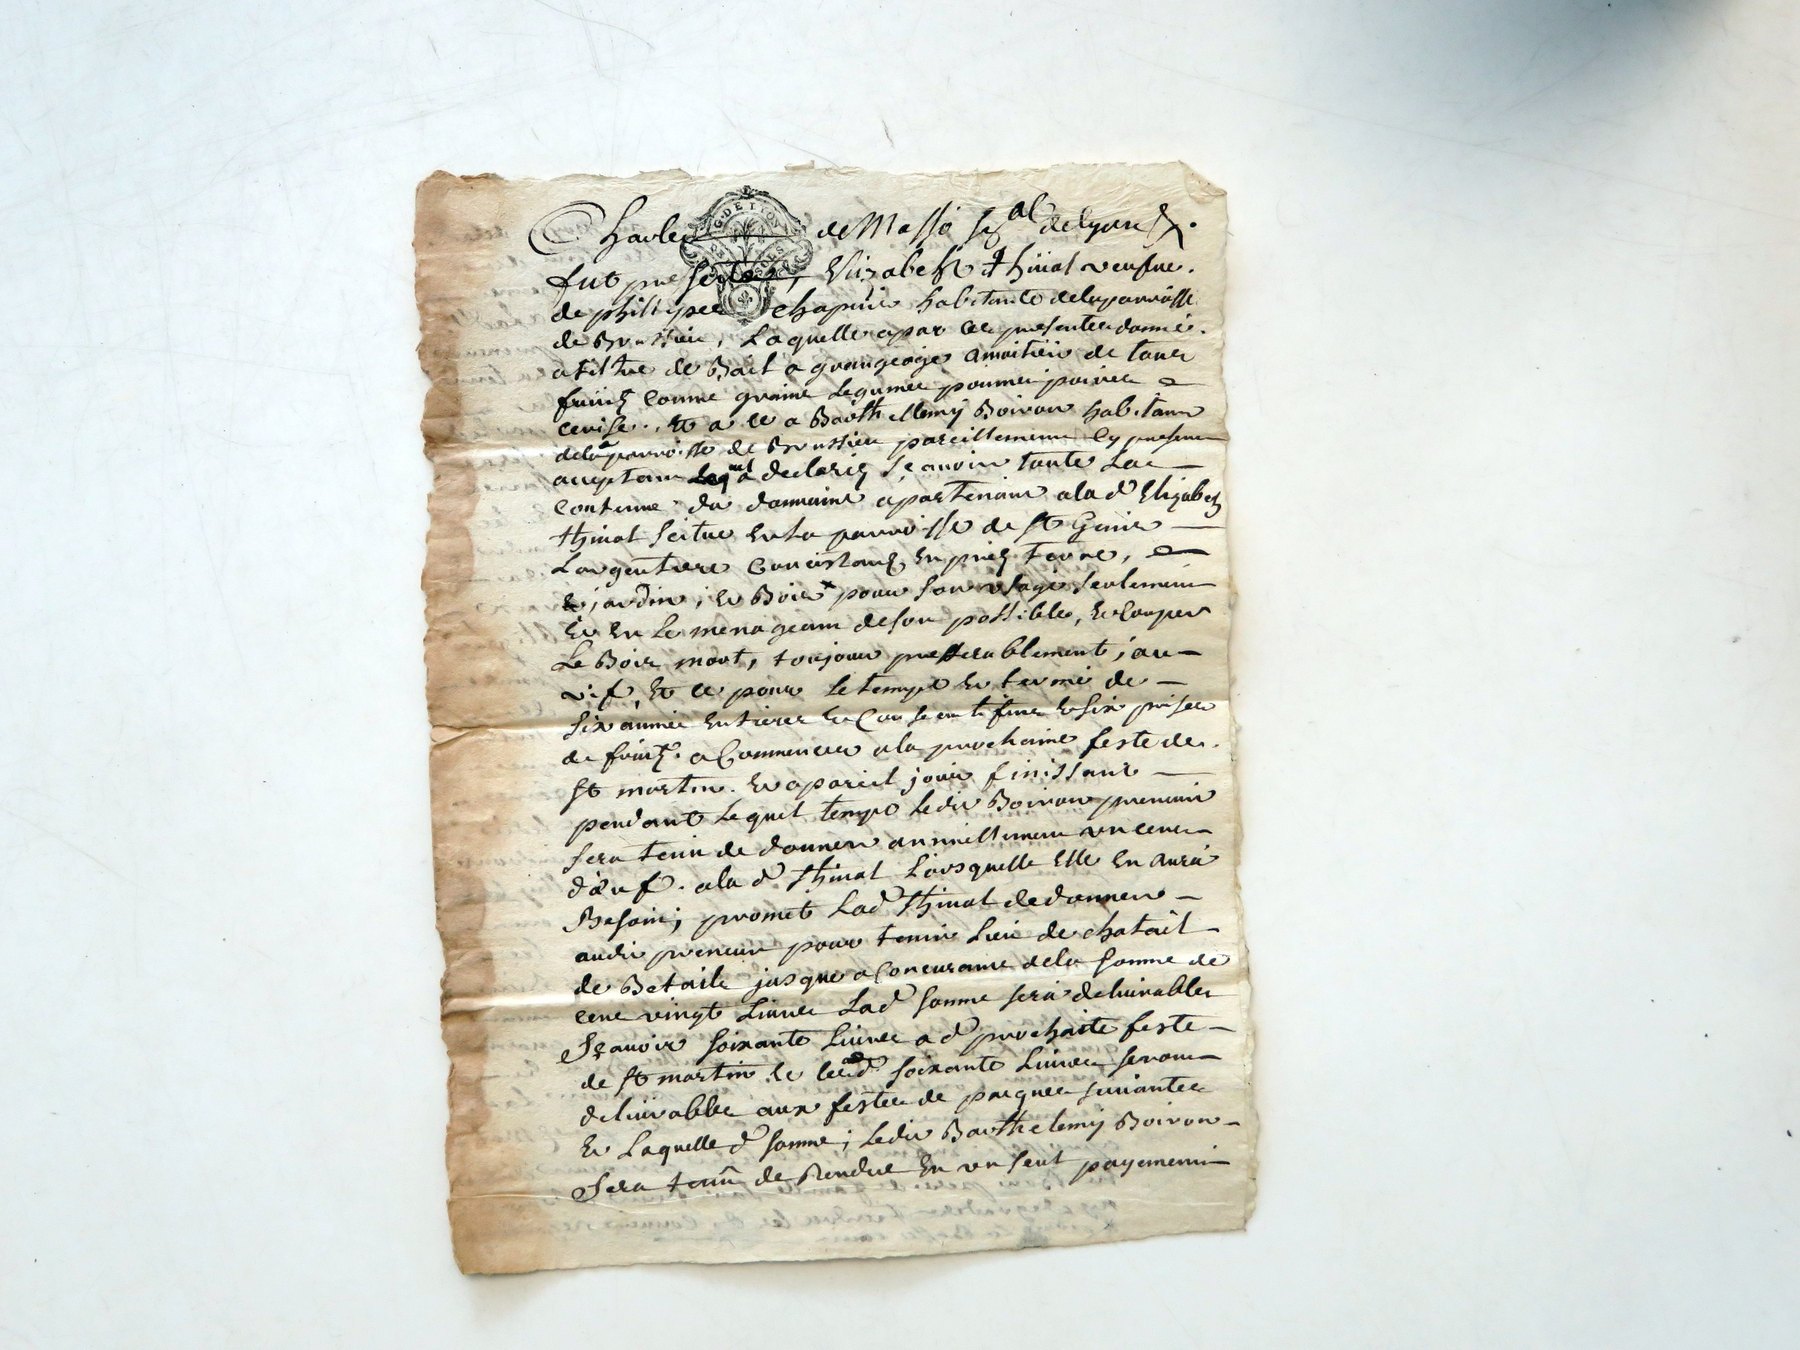 Charles de Masso sé^al de lyon &.
fut presente, Elizabeth Thinat veufue.
de philippes chapuis habitante dela parroisse
de Brussieu, Laquelle apar ces presentes donné.
a tiltre de Bail a grangeage amoitiée de tous
fruitz comme grains Legumes pommes poires
cerise. et a ce a Barthellemy Boiron habitant
dela parroisse de Brussieu pareillement Cy present
acceptant a declaré sçauoir toute La
contenue du domaine apartenant a la d^e Elizabeth
thinat scitue en La parroisse de st Genis
Largentiere Concistant En prez terre,
jardin, et Bois pour son vsage seulement
Et En Le menageant deson possible, et Couper
Le Bois mort, toujour preferablement, au
vif, Et ce pour Le temps et terme de
six année Entieres et Consecutifues et six prises
de fruitz. a Commencer ala prochaine feste de.
st martin. et apareil jour finissant
pendant Lequel temps Ledit Boiron preneur
sera tenu de donner annuellement un cent
d'oeuf. ala d^e thinat Lorsquelle Elle En aura
Besoin; promet Lad^e thinat de donner
audit preneur pour tenir Lieu de chatail
de Betaile jusque a Concurance dela somme de
cent vingt Liures Lad^e somme sera deliurables
Sçauoir soixante Liures a d^e prochaite feste
de st martin et les soixante Liures seront
deliurable aux festes de pasques suiuantes
Et Laquelle d^e somme; Ledit Barthelemy Boiron
Sera tenu de Rendre En un seul payement